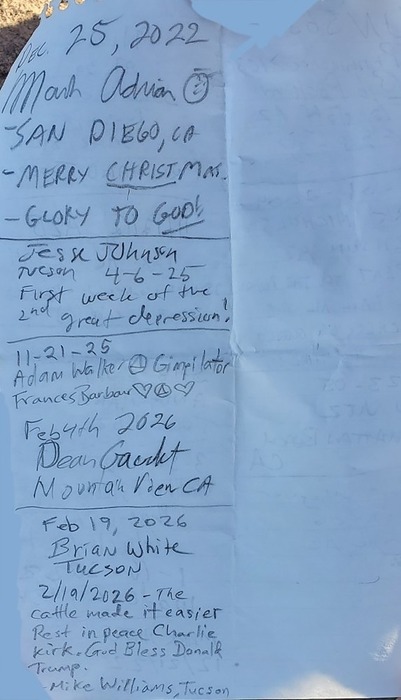 Dec. 25, 2022
Mark Adrian
-SAN DIEGO, CA
-MERRY CHRISTMAS.
-GLORY TO GOD!
Jesse Johnson
Tucson 4-6-25
First week of the
2nd great depression!
11-21-25
Adam Walker Gimpilator
Frances Barbour
Feb 4th 2026
Dean Gaudet
Mountain View CA
Feb 19, 2026
Brian White
TUCSON
2/19/2026 - The
cattle made it easier
Rest in peace Charlie
Kirk. God Bless Donald
Trump.
-Mike Williams, Tucson